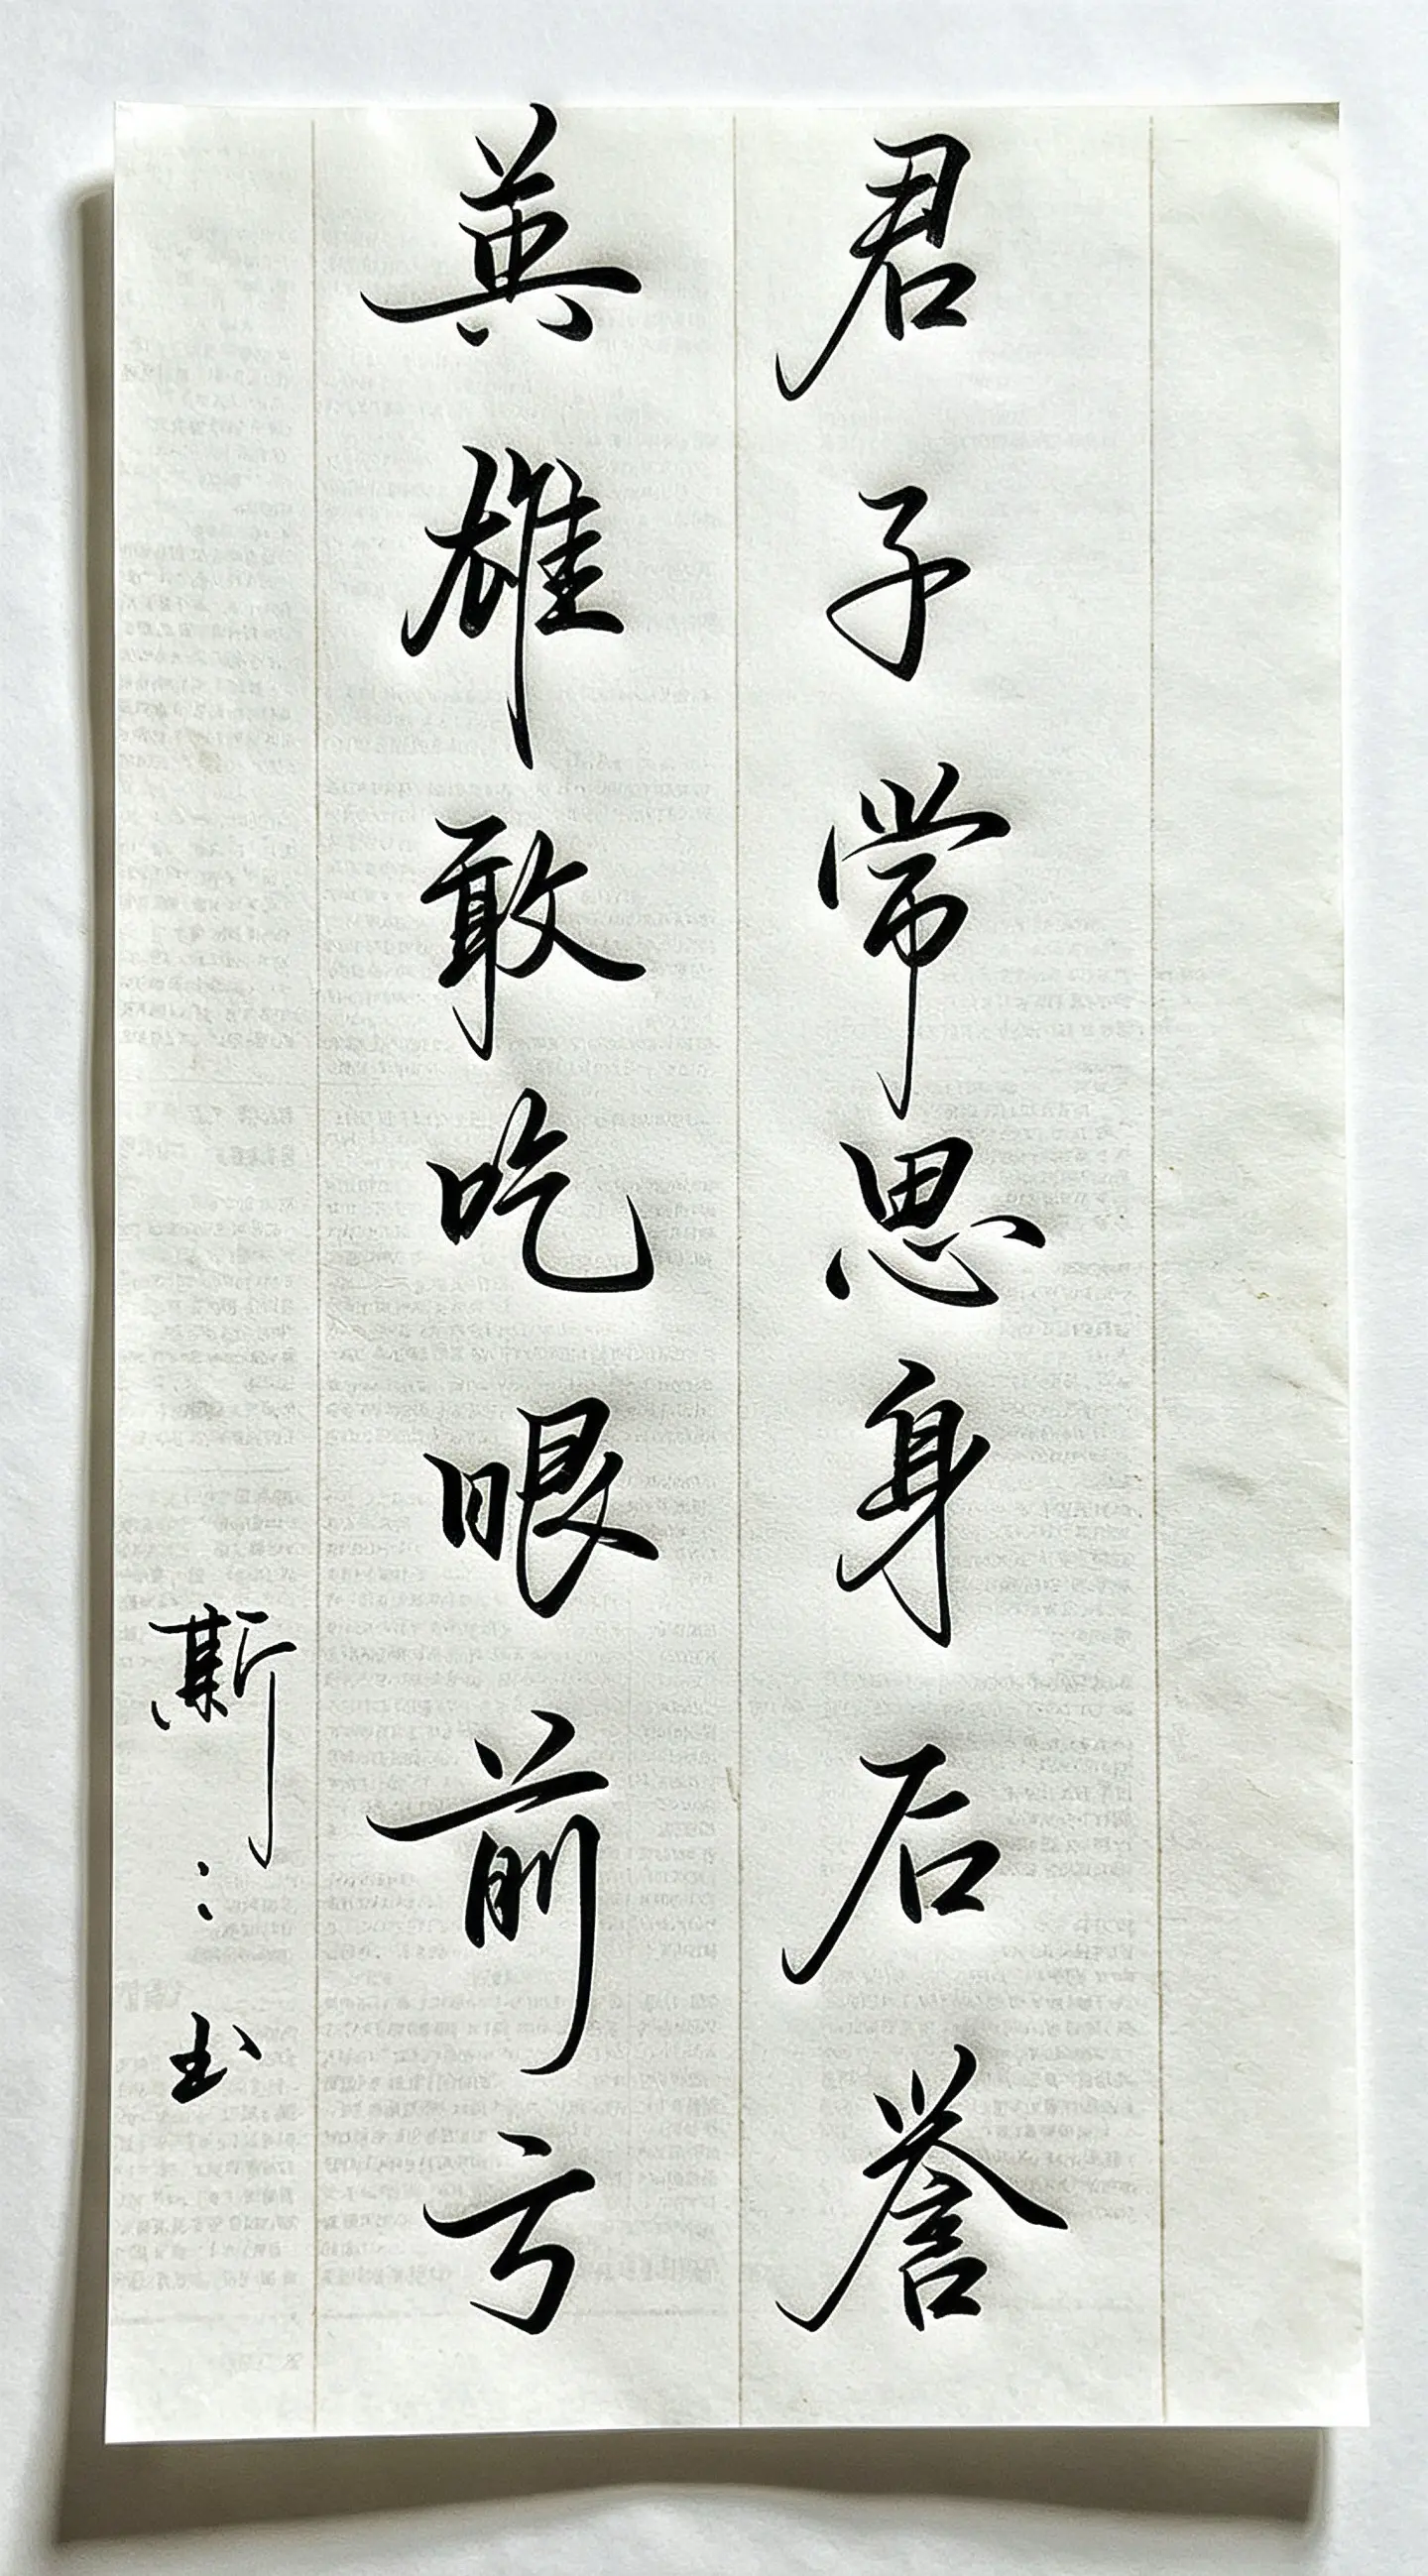 君子常思身后誉
英雄敢吃眼前亏
斯:：书